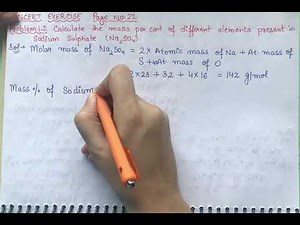 NCERT EXERCISE Page NO:22
Problem 1.2 Calculate the mass per cent of different elements present in
Sodium Sulphate (Na₂SO₄)
Sol- Molar mass of Na₂SO₄ = 2 x Atomic mass of Na + At mass of
S + 4 At mass of O
2 x 23 + 32 + 4 x 16 = 142 g/mol
Mass % of Sodium